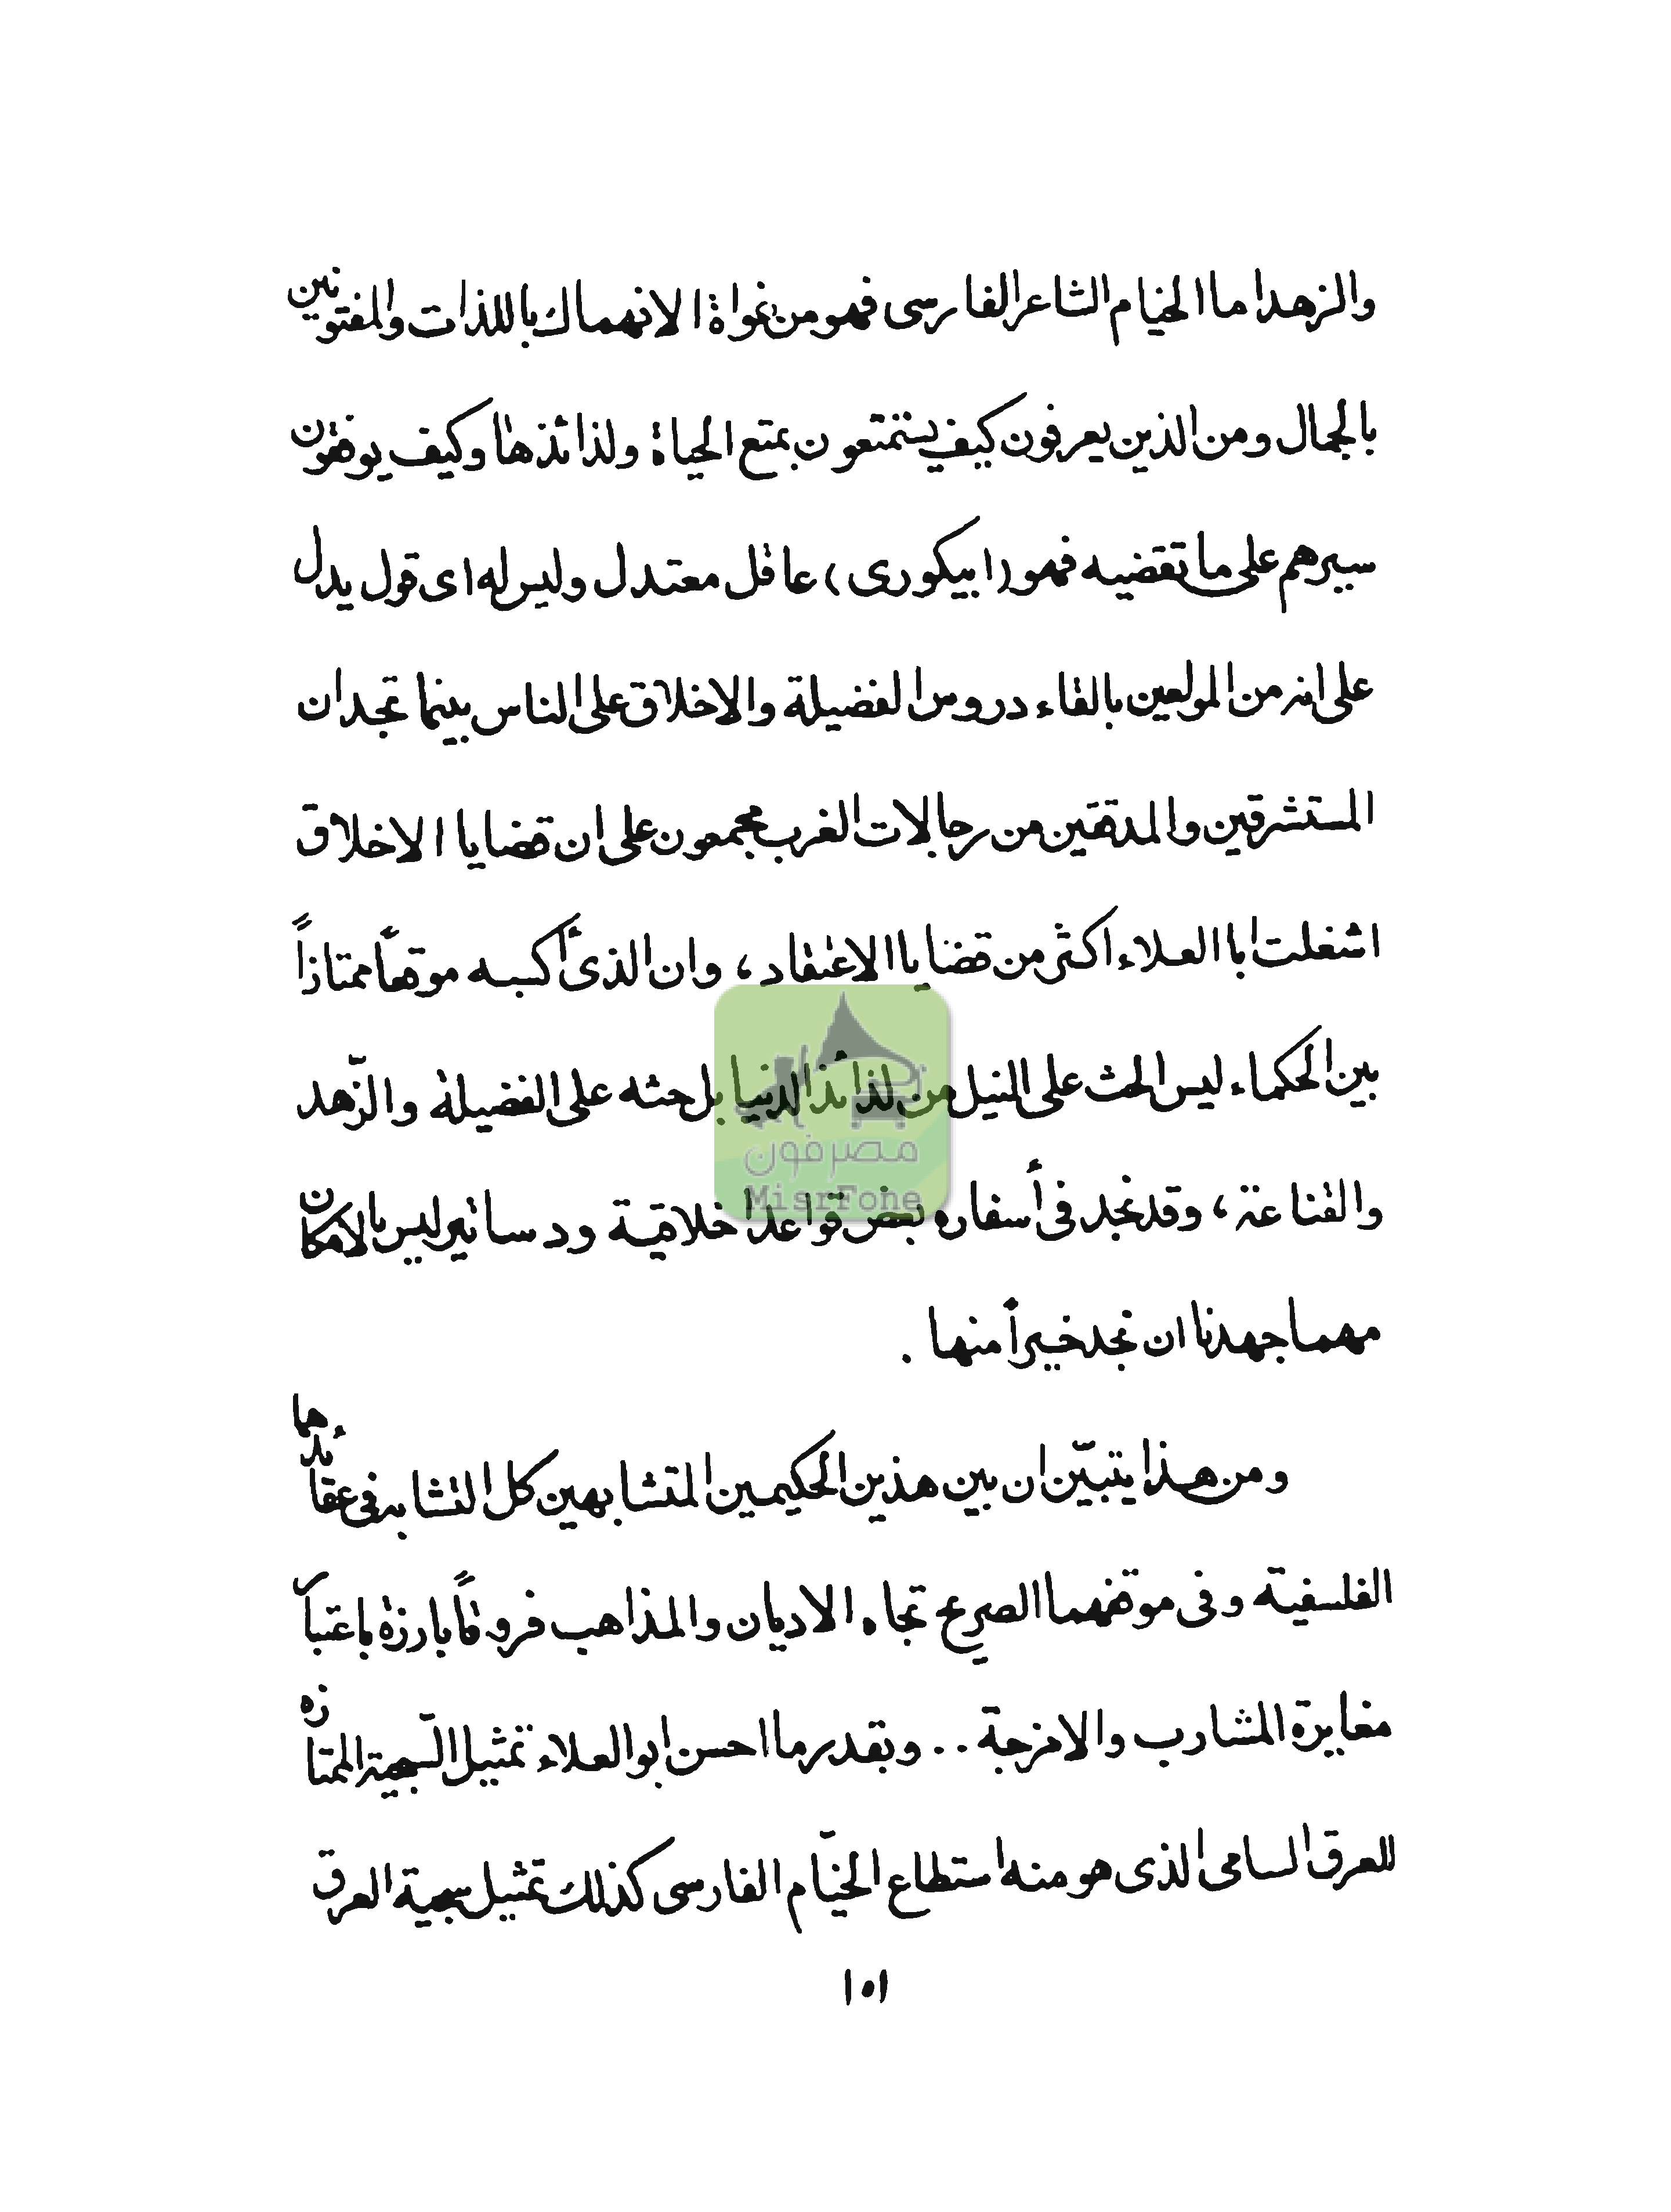 والزهد اما الخيام الشاعر الفارسى فهو من غواة الانهماك باللذات والمفتونين
بالجمال ومن الذين يعرفون كيف يستمتعون بمتع الحياة ولذائذها وكيف يوفقون
سيرهم على ما تقضيه فهو (ابيكورى) عاقل معتدل وليس له اى قول يدل
على انه من المولعين بالقاء دروس الفضيلة والاخلاق على الناس بينما تجد ان
المستشرقين والمدققين من رجالات الغرب مجمعون على ان قضايا الاخلاق
اشغلت ابا العلاء اكثر من قضايا الاعتقاد ، وان الذى أكسبه موقعاً ممتازاً
بين الحكماء ليس الحث على النيل من لذائذ الدنيا بل حثه على الفضيلة والزّهد
والقناعة ، وقد نجد فى أسفاره بعض قواعد اخلاقية ودساتير ليس بالامكان
مهما جهدنا ان نجد خيراً منها .
ومن هذا يتبيّن ان بين هذين الحكيمين المتشابهين كل التشابه فى عقائدها
الفلسفية وفى موقفهما الصريح تجاه الاديان والمذاهب فروقاً بارزة باعتبار
مغايرة المشارب والامزجة .. وبقدر ما احسن ابو العلاء تمثيل السّجية الممتازه
للعرق السامى الذى هو منه استطاع الخيّام الفارسى كذلك تمثيل سجية العرق
١٥١
مصرفون
MisrFone